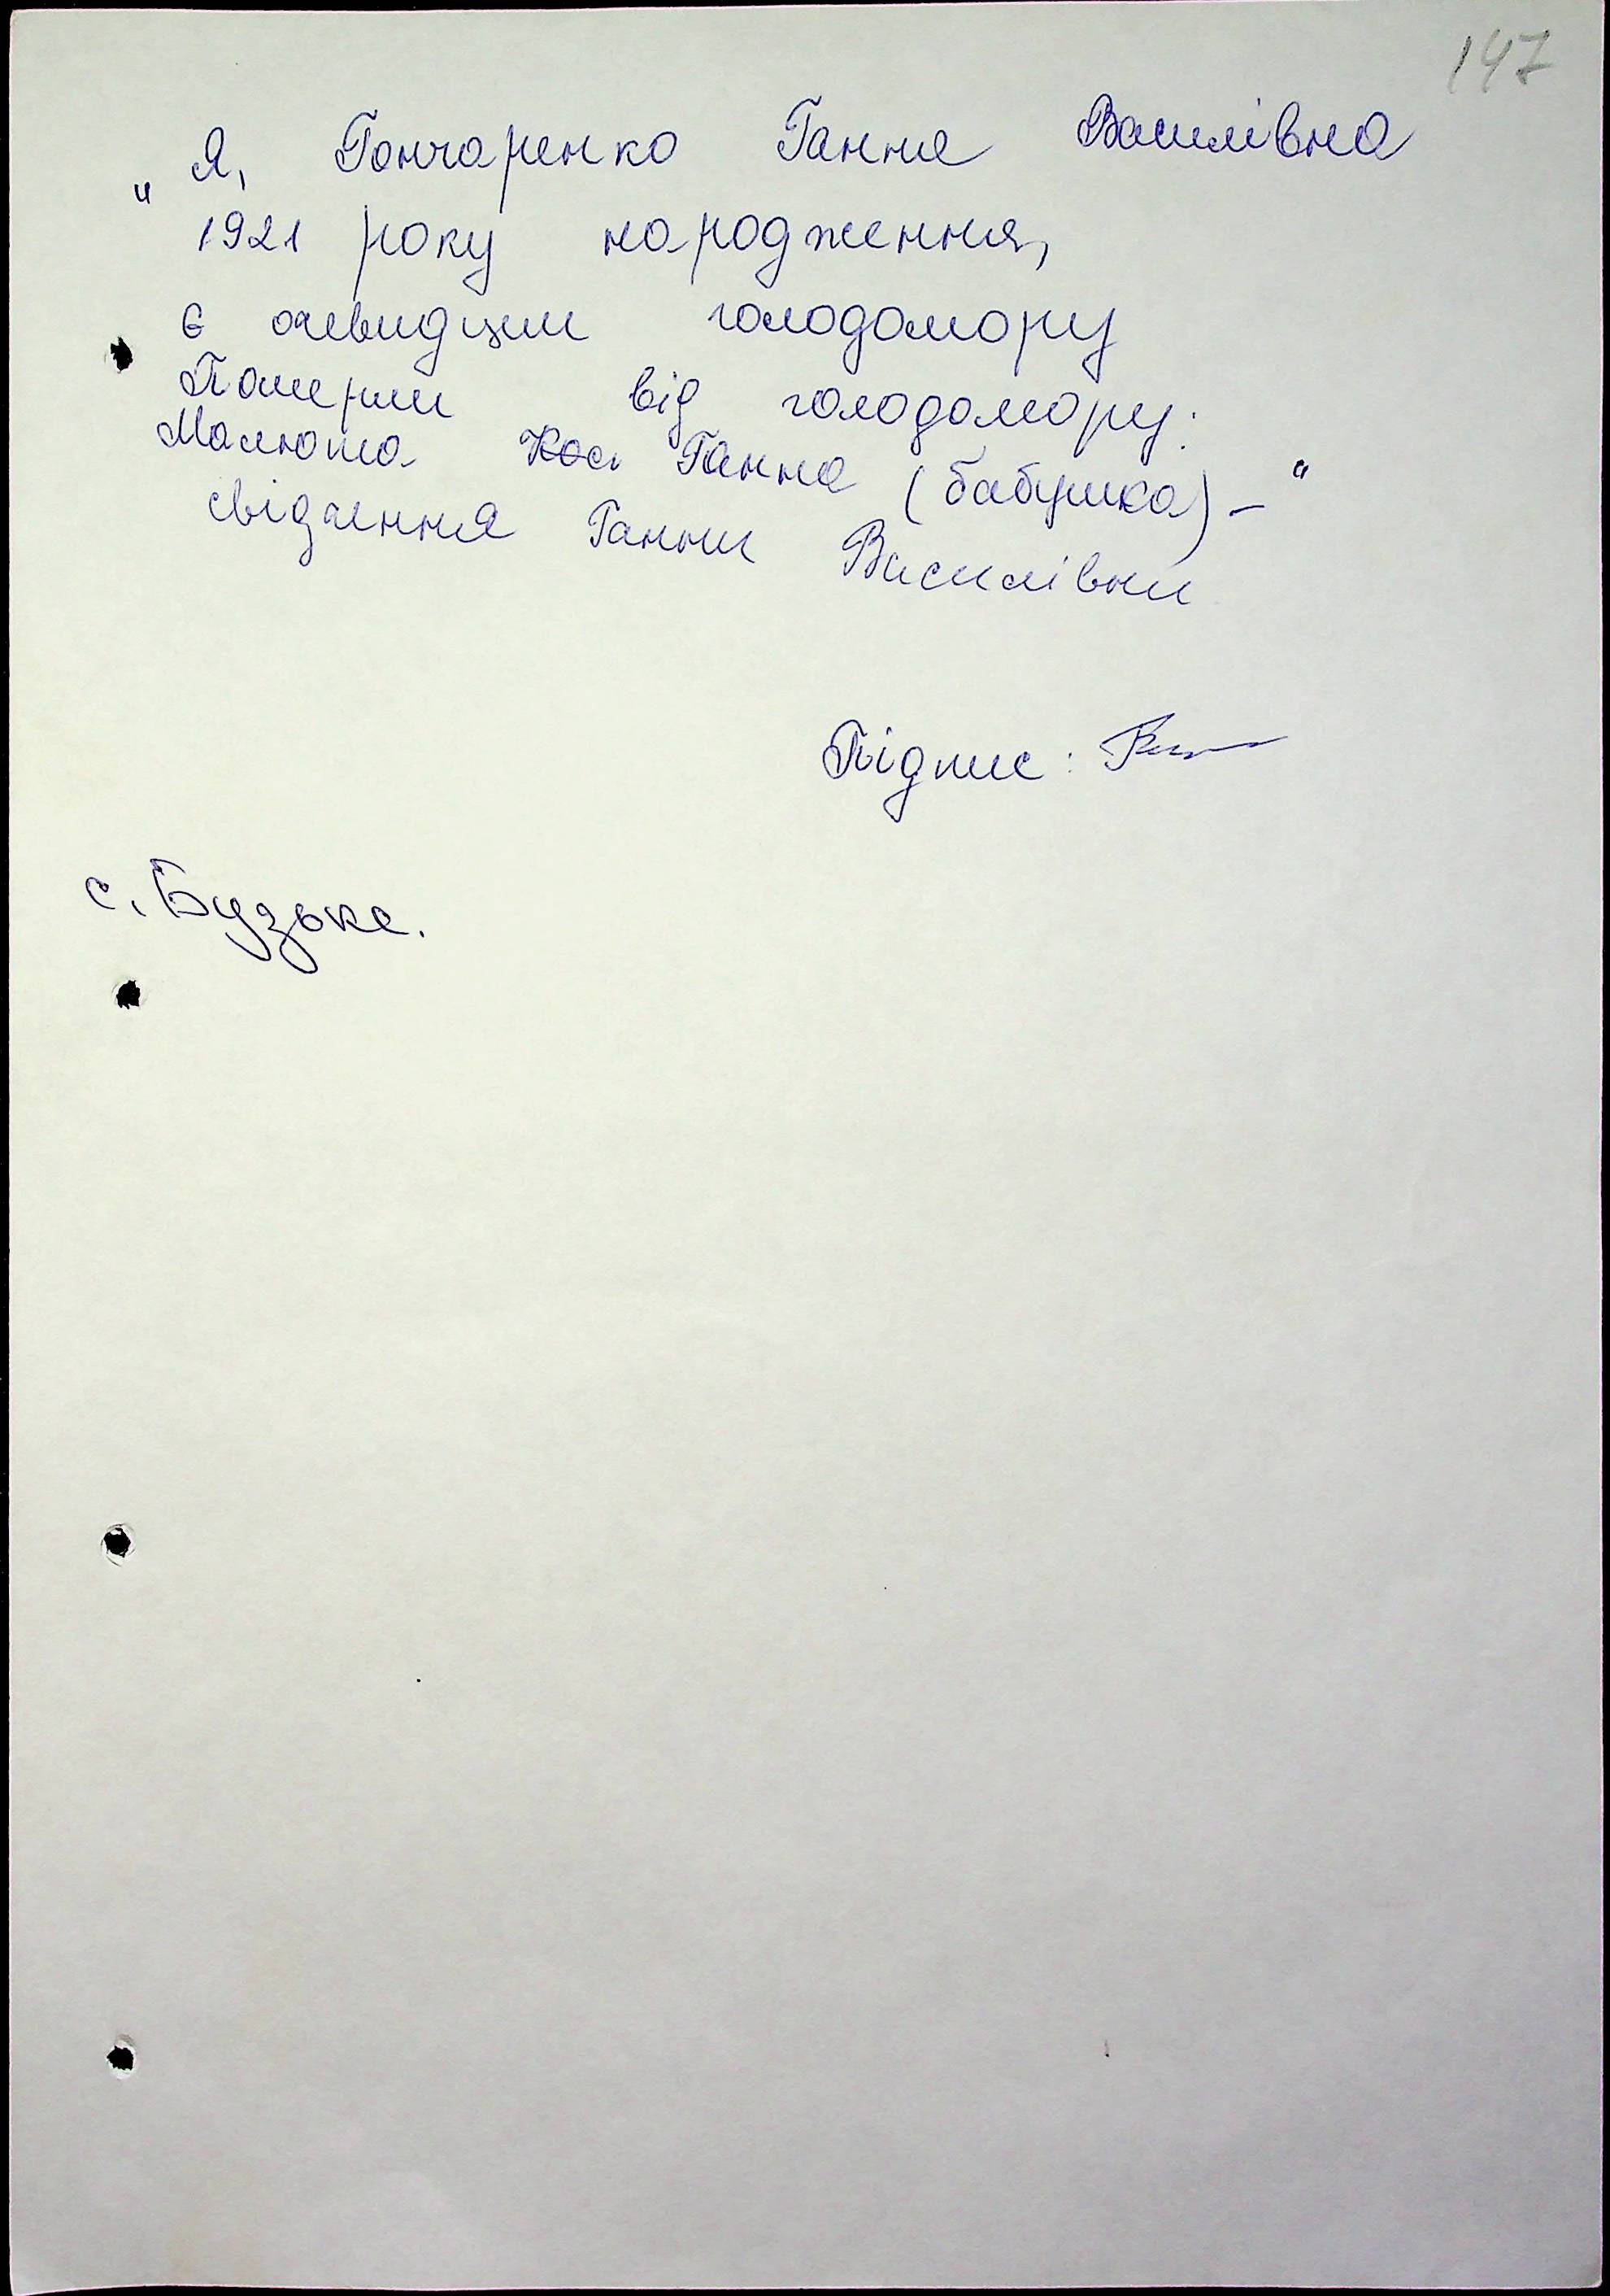 147
„ Я, Гончаренко Ганна Василівна
1921 року народження,
є очевидцем голодомору
Померли від голодомору:
Малюта Ганна (бабушка) – “
свідчення Ганни Василівни
Підпис:
с. Бузьке.